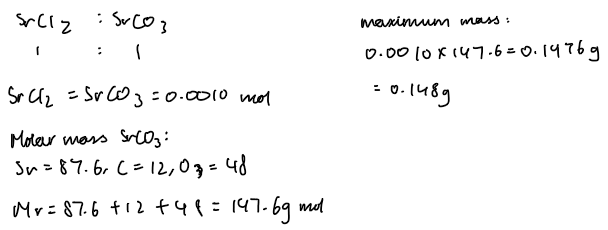 SrCl2 : SrCO3
1 : 1
SrCl2 = SrCO3 = 0.0010 mol
Molar mass SrCO3:
Sr = 87.6, C = 12, O3 = 48
Mr = 87.6 + 12 + 48 = 147.6g mol
maximum mass:
0.0010 × 147.6 = 0.1476 g
= 0.148g